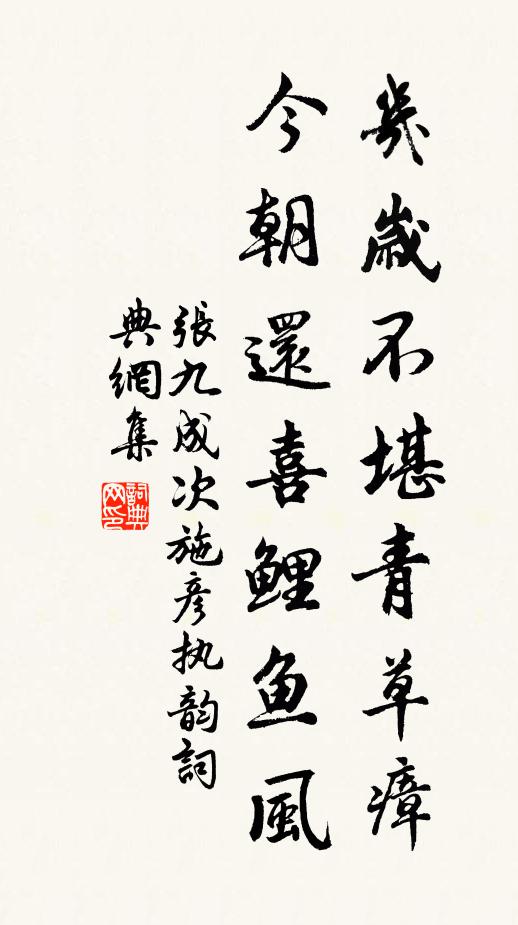 幾歲不堪青草瘴
今朝還喜鯉鱼風
張九成次施彥执韵詞
典網集
詞典
网印